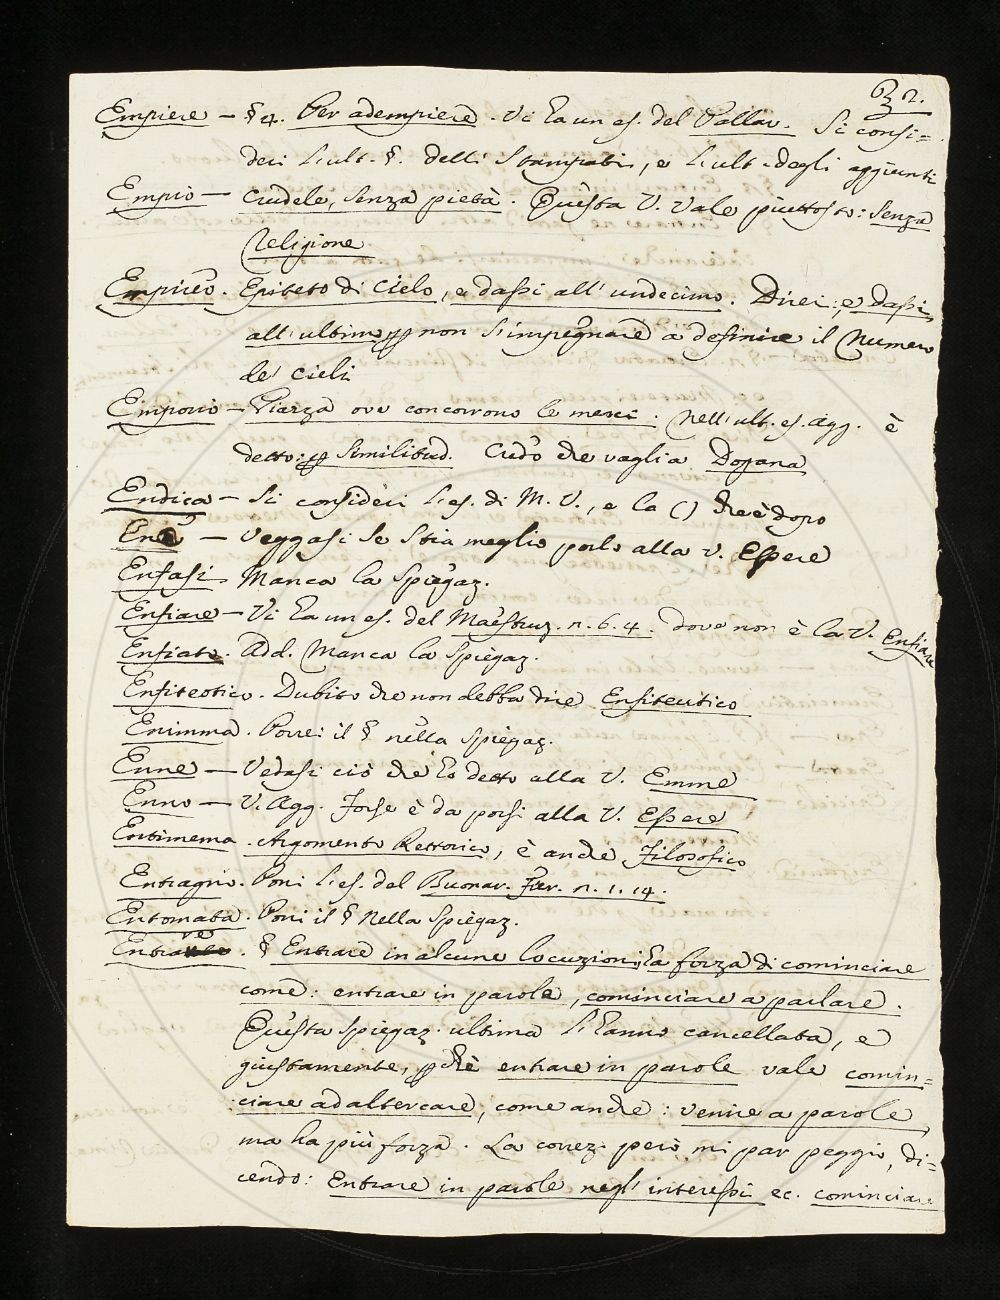 Empiere — §4. Per adempiere. Vi ha un es. del Pallav. Si consi=
deri l'ult. §. delli Stampati, e l'ult. degli aggiunti
Empio — Crudele, senza pietà. Questa V. vale piuttosto: senza
religione
Empireo. Epiteto di Cielo, e dassi all'undecimo. Direi: e dassi
all'ultimo p non s'impegnare a definire il numero
de' cieli
Emporio — Piazza ove concorrono le merci. Nell'ult. es. agg. è
detto: p similitud. Credo che vaglia Dogana
Endica — Si consideri l'es. di M. V., e la () che è dopo
— Veggasi se stia meglio porlo alla v. Essere
Enfasi Manca la spiegaz.
Enfiare — Vi ha un es. del Maestruz. n. 6. 4. dove non è la V. Enfiare
Enfiato. Add. Manca la spiegaz.
Enfiteotico. Dubito che non debba dire Enfiteutico
Enimma. Porrei il § nella spiegaz.
Enne — Vedasi ciò che ho detto alla V. Emme
Enno — V. Agg. Forse è da porsi alla V. Essere
Entimema. Argomento Rettorico, è anche Filosofico
Entragno. Poni l'es. del Buonar. Fier. n. 1. 14.
Entomata. Poni il § nella spiegaz.
Entrare. § Entrare in alcune locuzioni ha forza di cominciare
come: entrare in parole, cominciare a parlare.
Questa spiegaz. ultima l'hanno cancellata, e
giustamente, pchè entrare in parole vale comin=
ciare ad altercare, come anche: venire a parole
ma ha più forza. La correz. però mi par peggio, di=
cendo: Entrare in parole negl'interessi ec. cominciare